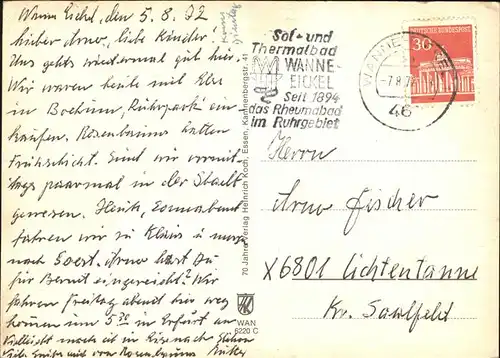 Wanne Eickel, den 5.8.72
Lieber Arno, liebe Kinder.
Uns gehts wiedermal gut hier.
Wir waren heute mit Else
in Bochum, Ruhrpark ein-
kaufen. Rosenbaums hatten
Frühschicht. Sind wir vormit-
tags paarmal in der Stadt
gewesen. Heute, Sonnabend
fahren wir zu Klaus u. morgen
nach Soest. Arno hast Du
für Bernd eingereicht? Wir
fahren Freitag abend hier weg
kommen um 5 30 in Erfurt an
Vielleicht auch ab in Eisenach Station
Viele Grüße mit von Rosenbaums
70 Jahre Verlag Heinrich Koch, Essen, Kahrenbergstr. 41
WAN
6220 C
Sol- und
Thermalbad
WANNE-
EICKEL
Seit 1894
das Rheumabad
im Ruhrgebiet
DEUTSCHE BUNDESPOST
30
-7.8.72
46
Herrn
Arno Fischer
X6801 Lichtentanne
Kr. Saalfeld